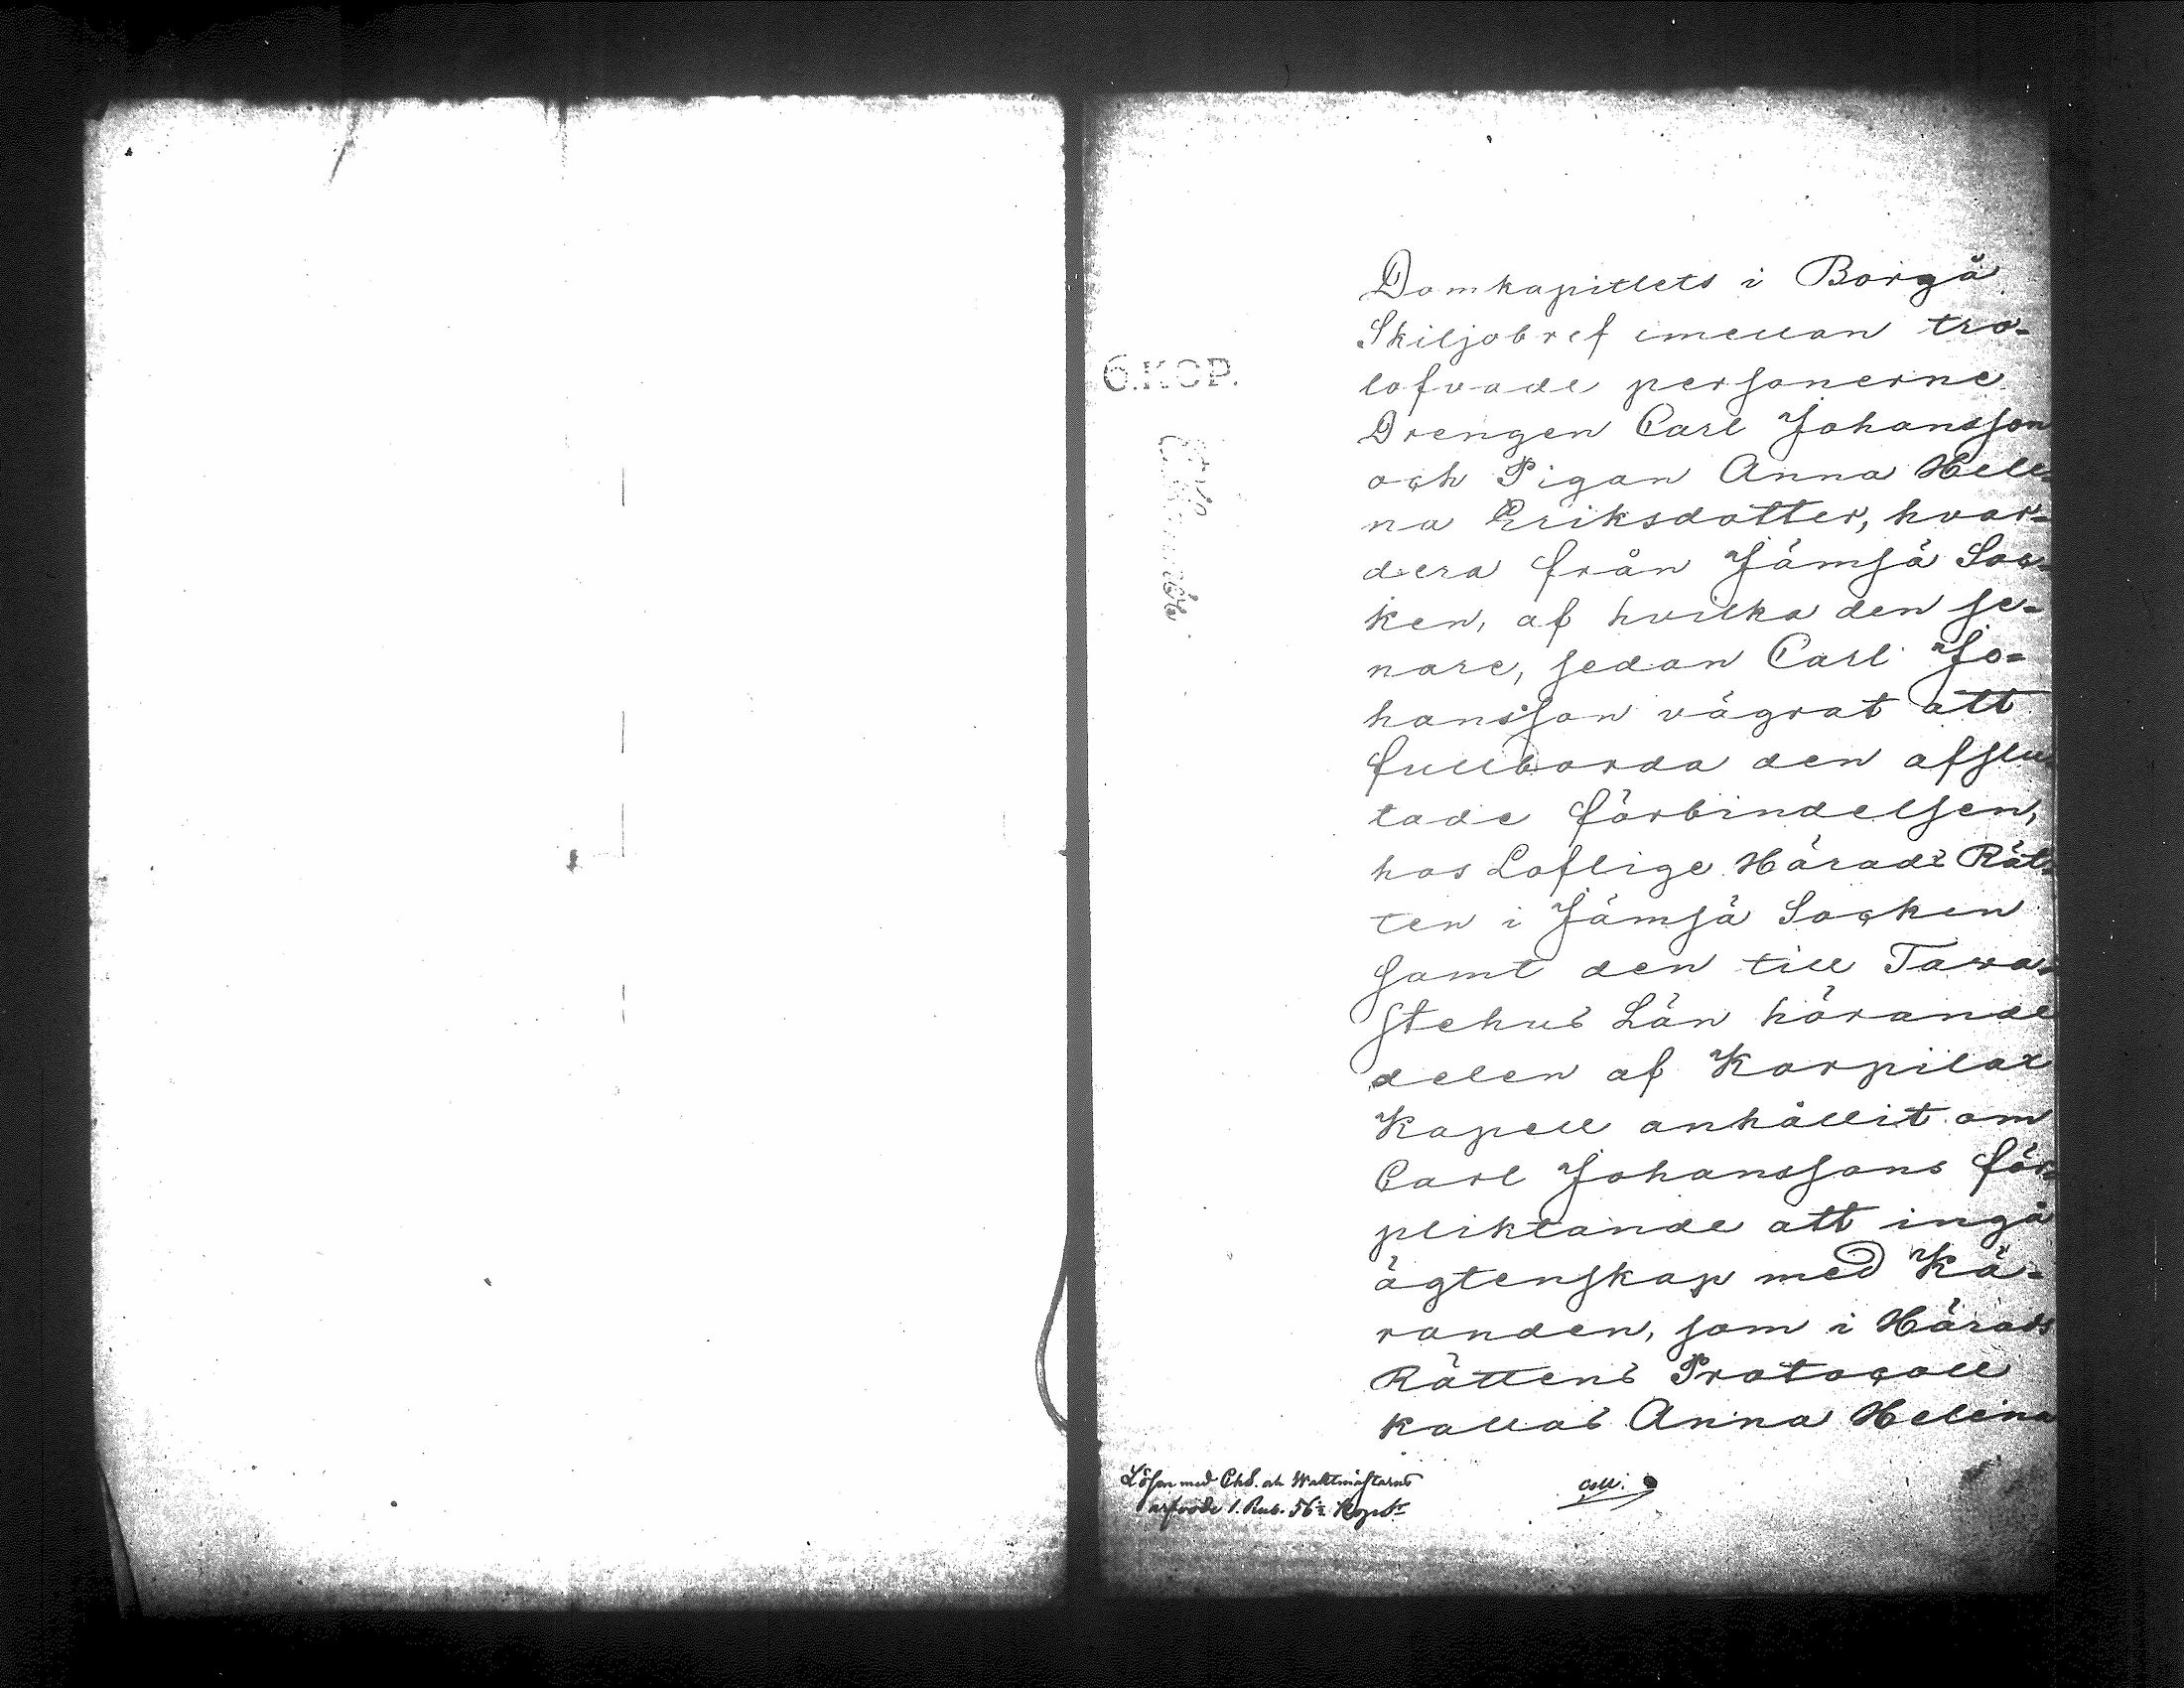 Domkapitlets i Borgå
Skiljobref emellan tro-
lofvade personerne
Drengen Carl Johansson
och Pigan Anna Hele-
na Eriksdotter, hvar-
dera från Jämsä Soc-
ken, af hvilka den se-
nare, sedan Carl Jo-
hansson vägrat att
fullborda den afslu-
tade förbindelsen,
hos Loflige Härads Rät-
ten i Jämsä Socken
samt den till Tava-
stehus Län hörande
delen af Korpilax
Kapell anhållit om
Carl Johanssons för-
pliktande att ingå
ägtenskap med Kä-
randen, som i Härads
Rättens Protocoll
kallas Anna Helena
6.KOP.
Lösen med Chs. och Waktmästarns
arfvode 1. Rub. 56½ Kop. Sr
coll.